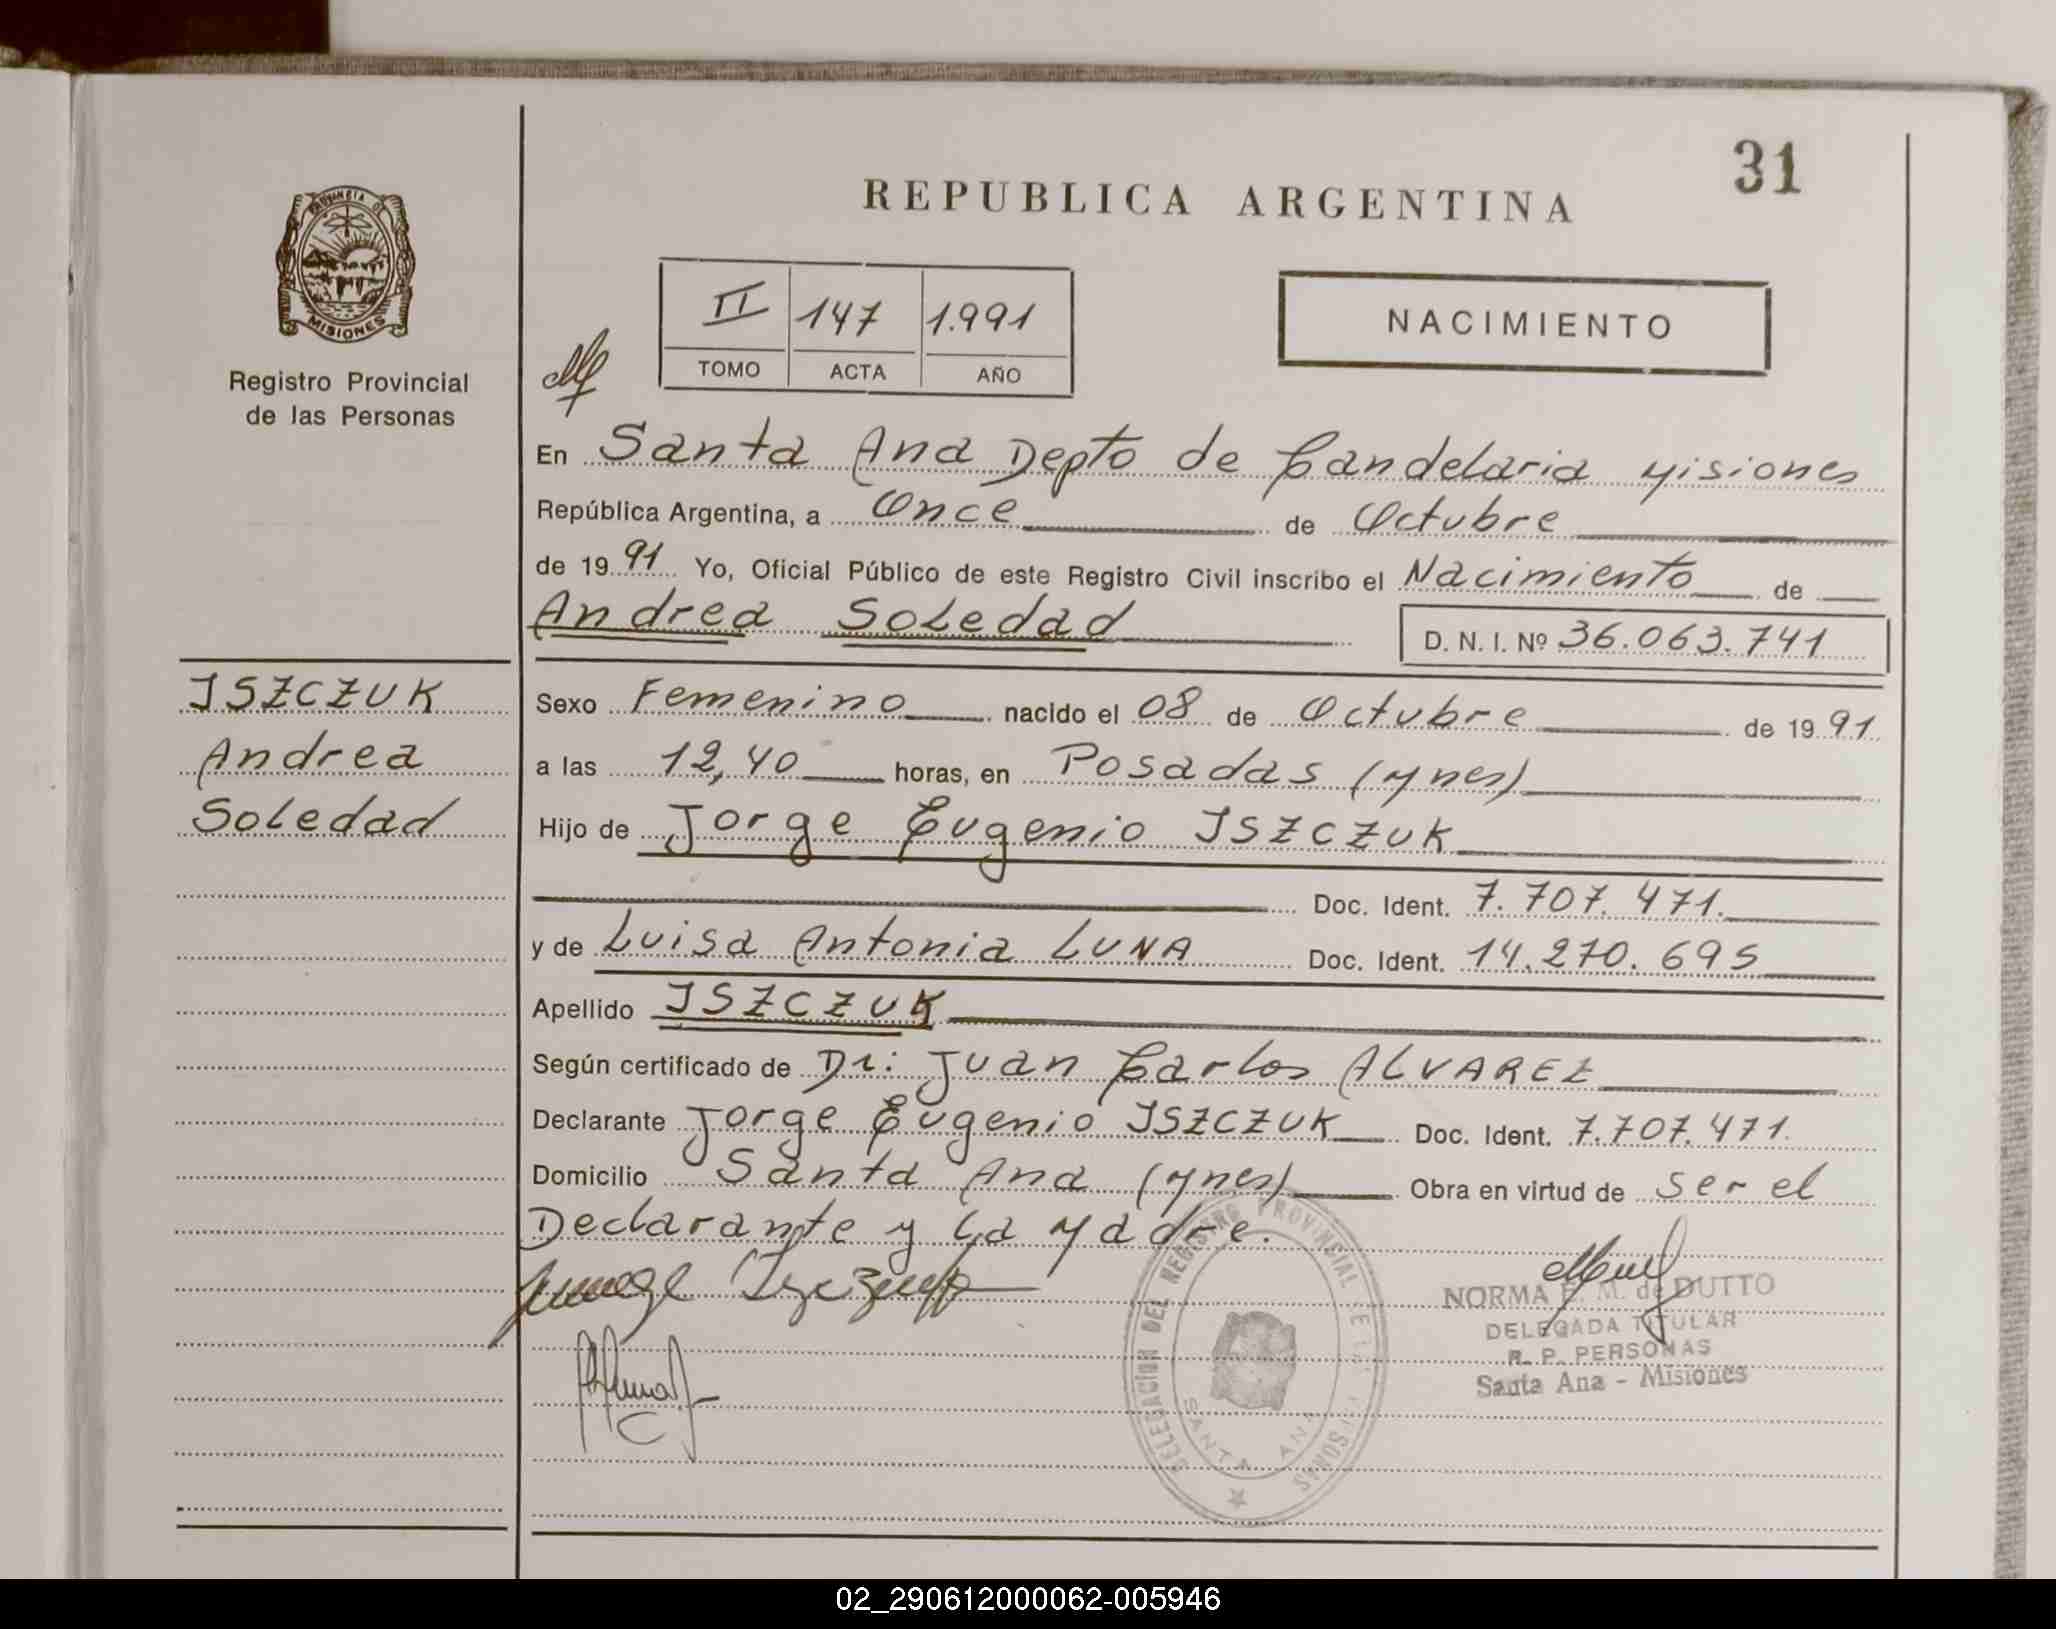 31
REPUBLICA ARGENTINA
PROVINCIA DE
MISIONES
Registro Provincial
de las Personas
II 147 1.991
TOMO ACTA AÑO
NACIMIENTO
En Santa Ana Depto de Candelaria Misiones
República Argentina, a Once de Octubre
de 1991 Yo, Oficial Público de este Registro Civil inscribo el Nacimiento de
Andrea Soledad D. N. I. Nº 36.063.741
ISZCZUK
Andrea
Soledad
Sexo Femenino nacido el 08 de Octubre de 1991
a las 12,40 horas, en Posadas (Mnes)
Hijo de Jorge Eugenio ISZCZUK
Doc. Ident. 7.707.471.
y de Luisa Antonia LUNA Doc. Ident. 14.270.695
Apellido ISZCZUK
Según certificado de Dr: Juan Carlos ALVAREZ
Declarante Jorge Eugenio ISZCZUK Doc. Ident. 7.707.471.
Domicilio Santa Ana (Mnes) Obra en virtud de ser el
Declarante y la Madre.
DELEGACION DEL REGISTRO PROVINCIAL DE LAS PERSONAS
SANTA ANA
NORMA E. M. de DUTTO
DELEGADA TITULAR
R. P. PERSONAS
Santa Ana - Misiones
02_290612000062-005946